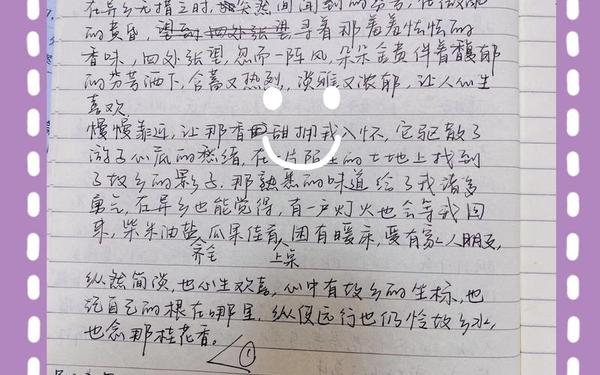 在异乡无措之时,突然间闻到的芬芳,在微风
的黄昏,寻着那若有若无的
香味,四处张望,忽而一阵风,朵朵金黄伴着馥郁
的芬芳洒下,含蓄又热烈,淡雅又浓郁,让人心生
喜欢。
慢慢靠近,让那香甜拥我入怀,它驱散了
游子心底的愁绪,在一片陌生的土地上找到
了故乡的影子。那熟悉的味道给了我诸多
勇气,在异乡也能觉得,有一户灯火也会等我回
来,柴米油盐 瓜果佳肴,团有暖床,要有家人朋友,
齐全 上桌
纵然简淡,也心生欢喜,心中有故乡的坐标,也
记自己的根在哪里,纵使远行也仍恰故乡水,
也念那桂花香。
①